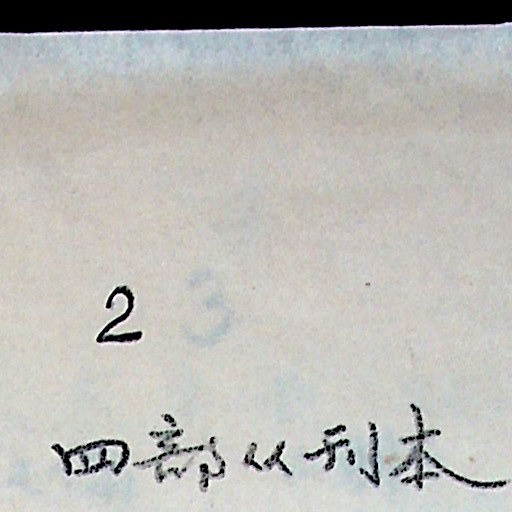 2 3
四部丛刊本